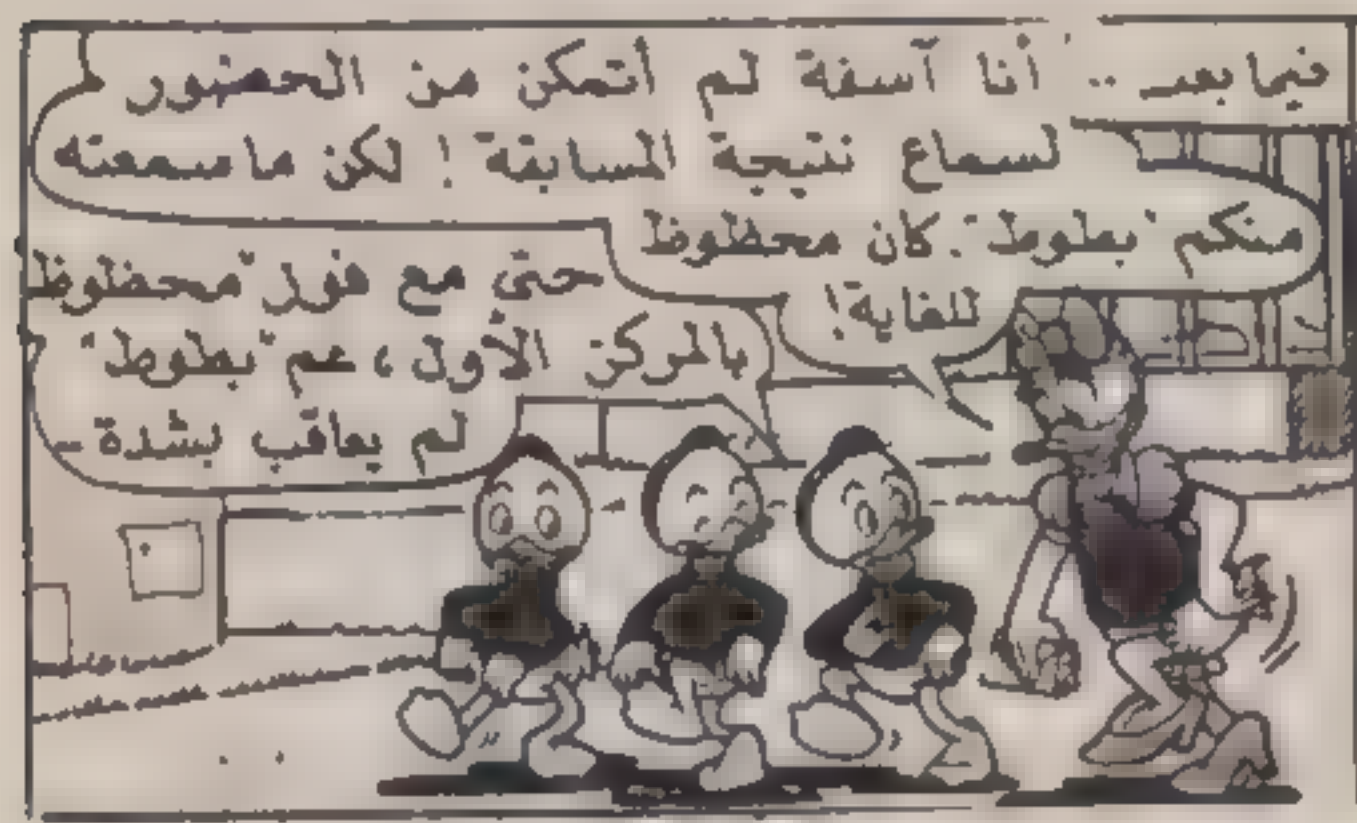 فيما بعد ..
أنا آسفة لم أتمكن من الحضور
لسماع نتيجة المسابقة ! لكن ما سمعته
منكم "بطوط" . كان محظوظ
للغاية !
حتى مع فوز "محظوظ"
بالمركز الأول ، عم "بطوط"
لم يعاقب بشدة -